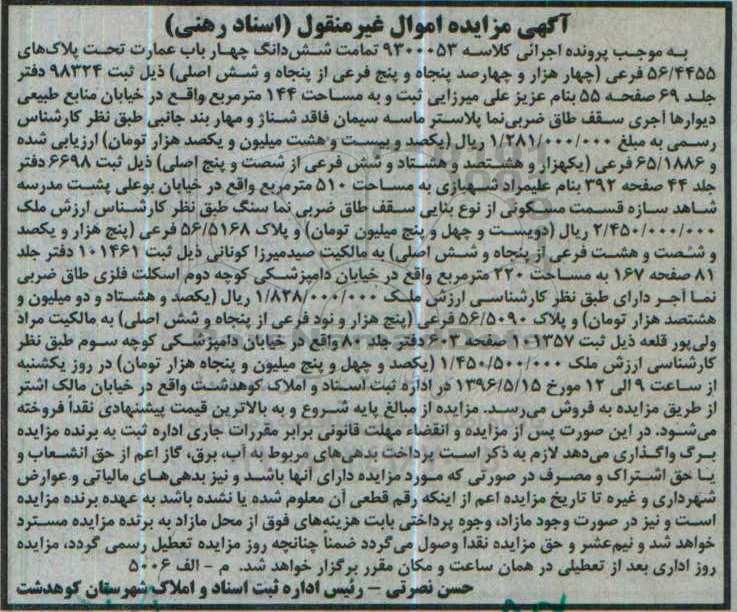 آگهی مزایده اموال غیرمنقول (اسناد رهنی)
به موجب پرونده اجرائی کلاسه ۹۳۰۰۰۵۳ تمامت شش‌دانگ چهار باب عمارت تحت پلاک‌های
۵۶/۴۴۵۵ فرعی (چهار هزار و چهارصد پنجاه و پنج فرعی از پنجاه و شش اصلی) ذیل ثبت ۹۸۳۲۴ دفتر
جلد ۶۹ صفحه ۵۵ بنام عزیز علی میرزایی ثبت و به مساحت ۱۴۴ مترمربع واقع در خیابان منابع طبیعی
دیوارها آجری سقف طاق ضربی‌نما پلاستر ماسه سیمان فاقد شناژ و مهار بند جانبی طبق نظر کارشناس
رسمی به مبلغ ۱/۲۸۱/۰۰۰/۰۰۰ ریال (یکصد و بیست و هشت میلیون و یکصد هزار تومان) ارزیابی شده
و ۶۵/۱۸۸۶ فرعی (یکهزار و هشتصد و هشتاد و شش فرعی از شصت و پنج اصلی) ذیل ثبت ۶۶۹۸ دفتر
جلد ۴۴ صفحه ۳۹۲ بنام علیمراد شهبازی به مساحت ۵۱۰ مترمربع واقع در خیابان بوعلی پشت مدرسه
شاهد سازه قسمت مسکونی از نوع بنایی سقف طاق ضربی نما سنگ طبق نظر کارشناس ارزش ملک
۲/۴۵۰/۰۰۰/۰۰۰ ریال (دویست و چهل و پنج میلیون تومان) و پلاک ۵۶/۵۱۶۸ فرعی (پنج هزار و یکصد
و شصت و هشت فرعی از پنجاه و شش اصلی) به مالکیت صیدمیرزا کونانی ذیل ثبت ۱۰۱۴۶۱ دفتر جلد
۸۱ صفحه ۱۶۷ به مساحت ۲۲۰ مترمربع واقع در خیابان دامپزشکی کوچه دوم اسکلت فلزی طاق ضربی
نما آجر دارای طبق نظر کارشناسی ارزش ملک ۱/۸۲۸/۰۰۰/۰۰۰ ریال (یکصد و هشتاد و دو میلیون و
هشتصد هزار تومان) و پلاک ۵۶/۵۰۹۰ فرعی (پنج هزار و نود فرعی از پنجاه و شش اصلی) به مالکیت مراد
ولی‌پور قلعه ذیل ثبت ۱۰۱۳۵۷ صفحه ۶۰۳ دفتر جلد ۸۰ واقع در خیابان دامپزشکی کوچه سوم طبق نظر
کارشناسی ارزش ملک ۱/۴۵۰/۵۰۰/۰۰۰ (یکصد و چهل و پنج میلیون و پنجاه هزار تومان) در روز یکشنبه
از ساعت ۹ الی ۱۲ مورخ ۱۳۹۶/۵/۱۵ در اداره ثبت اسناد و املاک کوهدشت واقع در خیابان مالک اشتر
از طریق مزایده به فروش می‌رسد. مزایده از مبالغ پایه شروع و به بالاترین قیمت پیشنهادی نقدا فروخته
می‌شود. در این صورت پس از مزایده و انقضاء مهلت قانونی برابر مقررات جاری اداره ثبت به برنده مزایده
برگ واگذاری می‌دهد لازم به ذکر است پرداخت بدهی‌های مربوط به آب، برق، گاز اعم از حق انشعاب و
یا حق اشتراک و مصرف در صورتی که مورد مزایده دارای آنها باشد و نیز بدهی‌های مالیاتی و عوارض
شهرداری و غیره تا تاریخ مزایده اعم از اینکه رقم قطعی آن معلوم شده یا نشده باشد به عهده برنده مزایده
است و نیز در صورت وجود مازاد، وجوه پرداختی بابت هزینه‌های فوق از محل مازاد به برنده مزایده مسترد
خواهد شد و نیم‌عشر و حق مزایده نقدا وصول می‌گردد ضمنا چنانچه روز مزایده تعطیل رسمی گردد، مزایده
روز اداری بعد از تعطیلی در همان ساعت و مکان مقرر برگزار خواهد شد. م - الف ۵۰۰۶
حسن نصرتی – رئیس اداره ثبت اسناد و املاک شهرستان کوهدشت